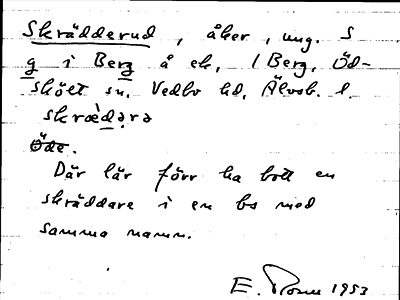 Skrädderud, åker, ung. S
g i Berg å ek, 1 Berg, Öd-
skölt sn. Vedbo hd, Älvsb. l.
skræ̀dərə
Öde.
Där lär förr ha bott en
skräddare i en bs med
samma namn.
E. Rosén 1953